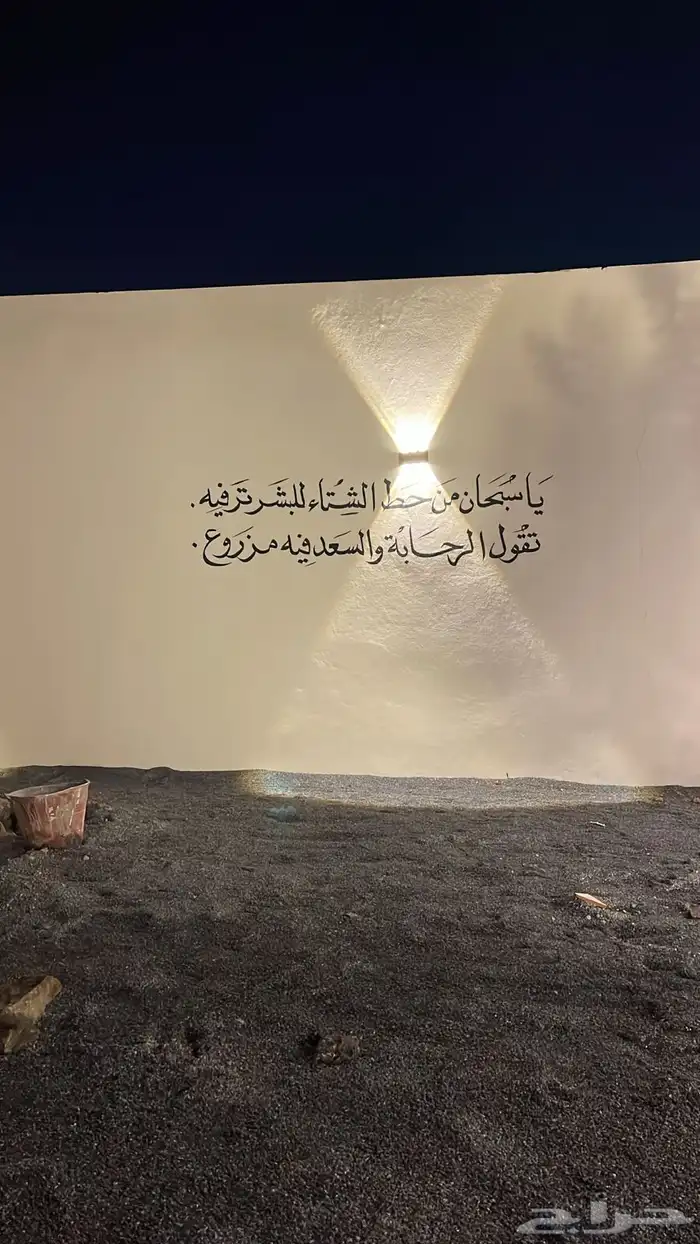 يَا سُبْحَان مَن حَط الشِّتَاء للبشَر تَرفيه.
تقُول الرحَابَة والسَعَد فيه مزرَوع.
حراج